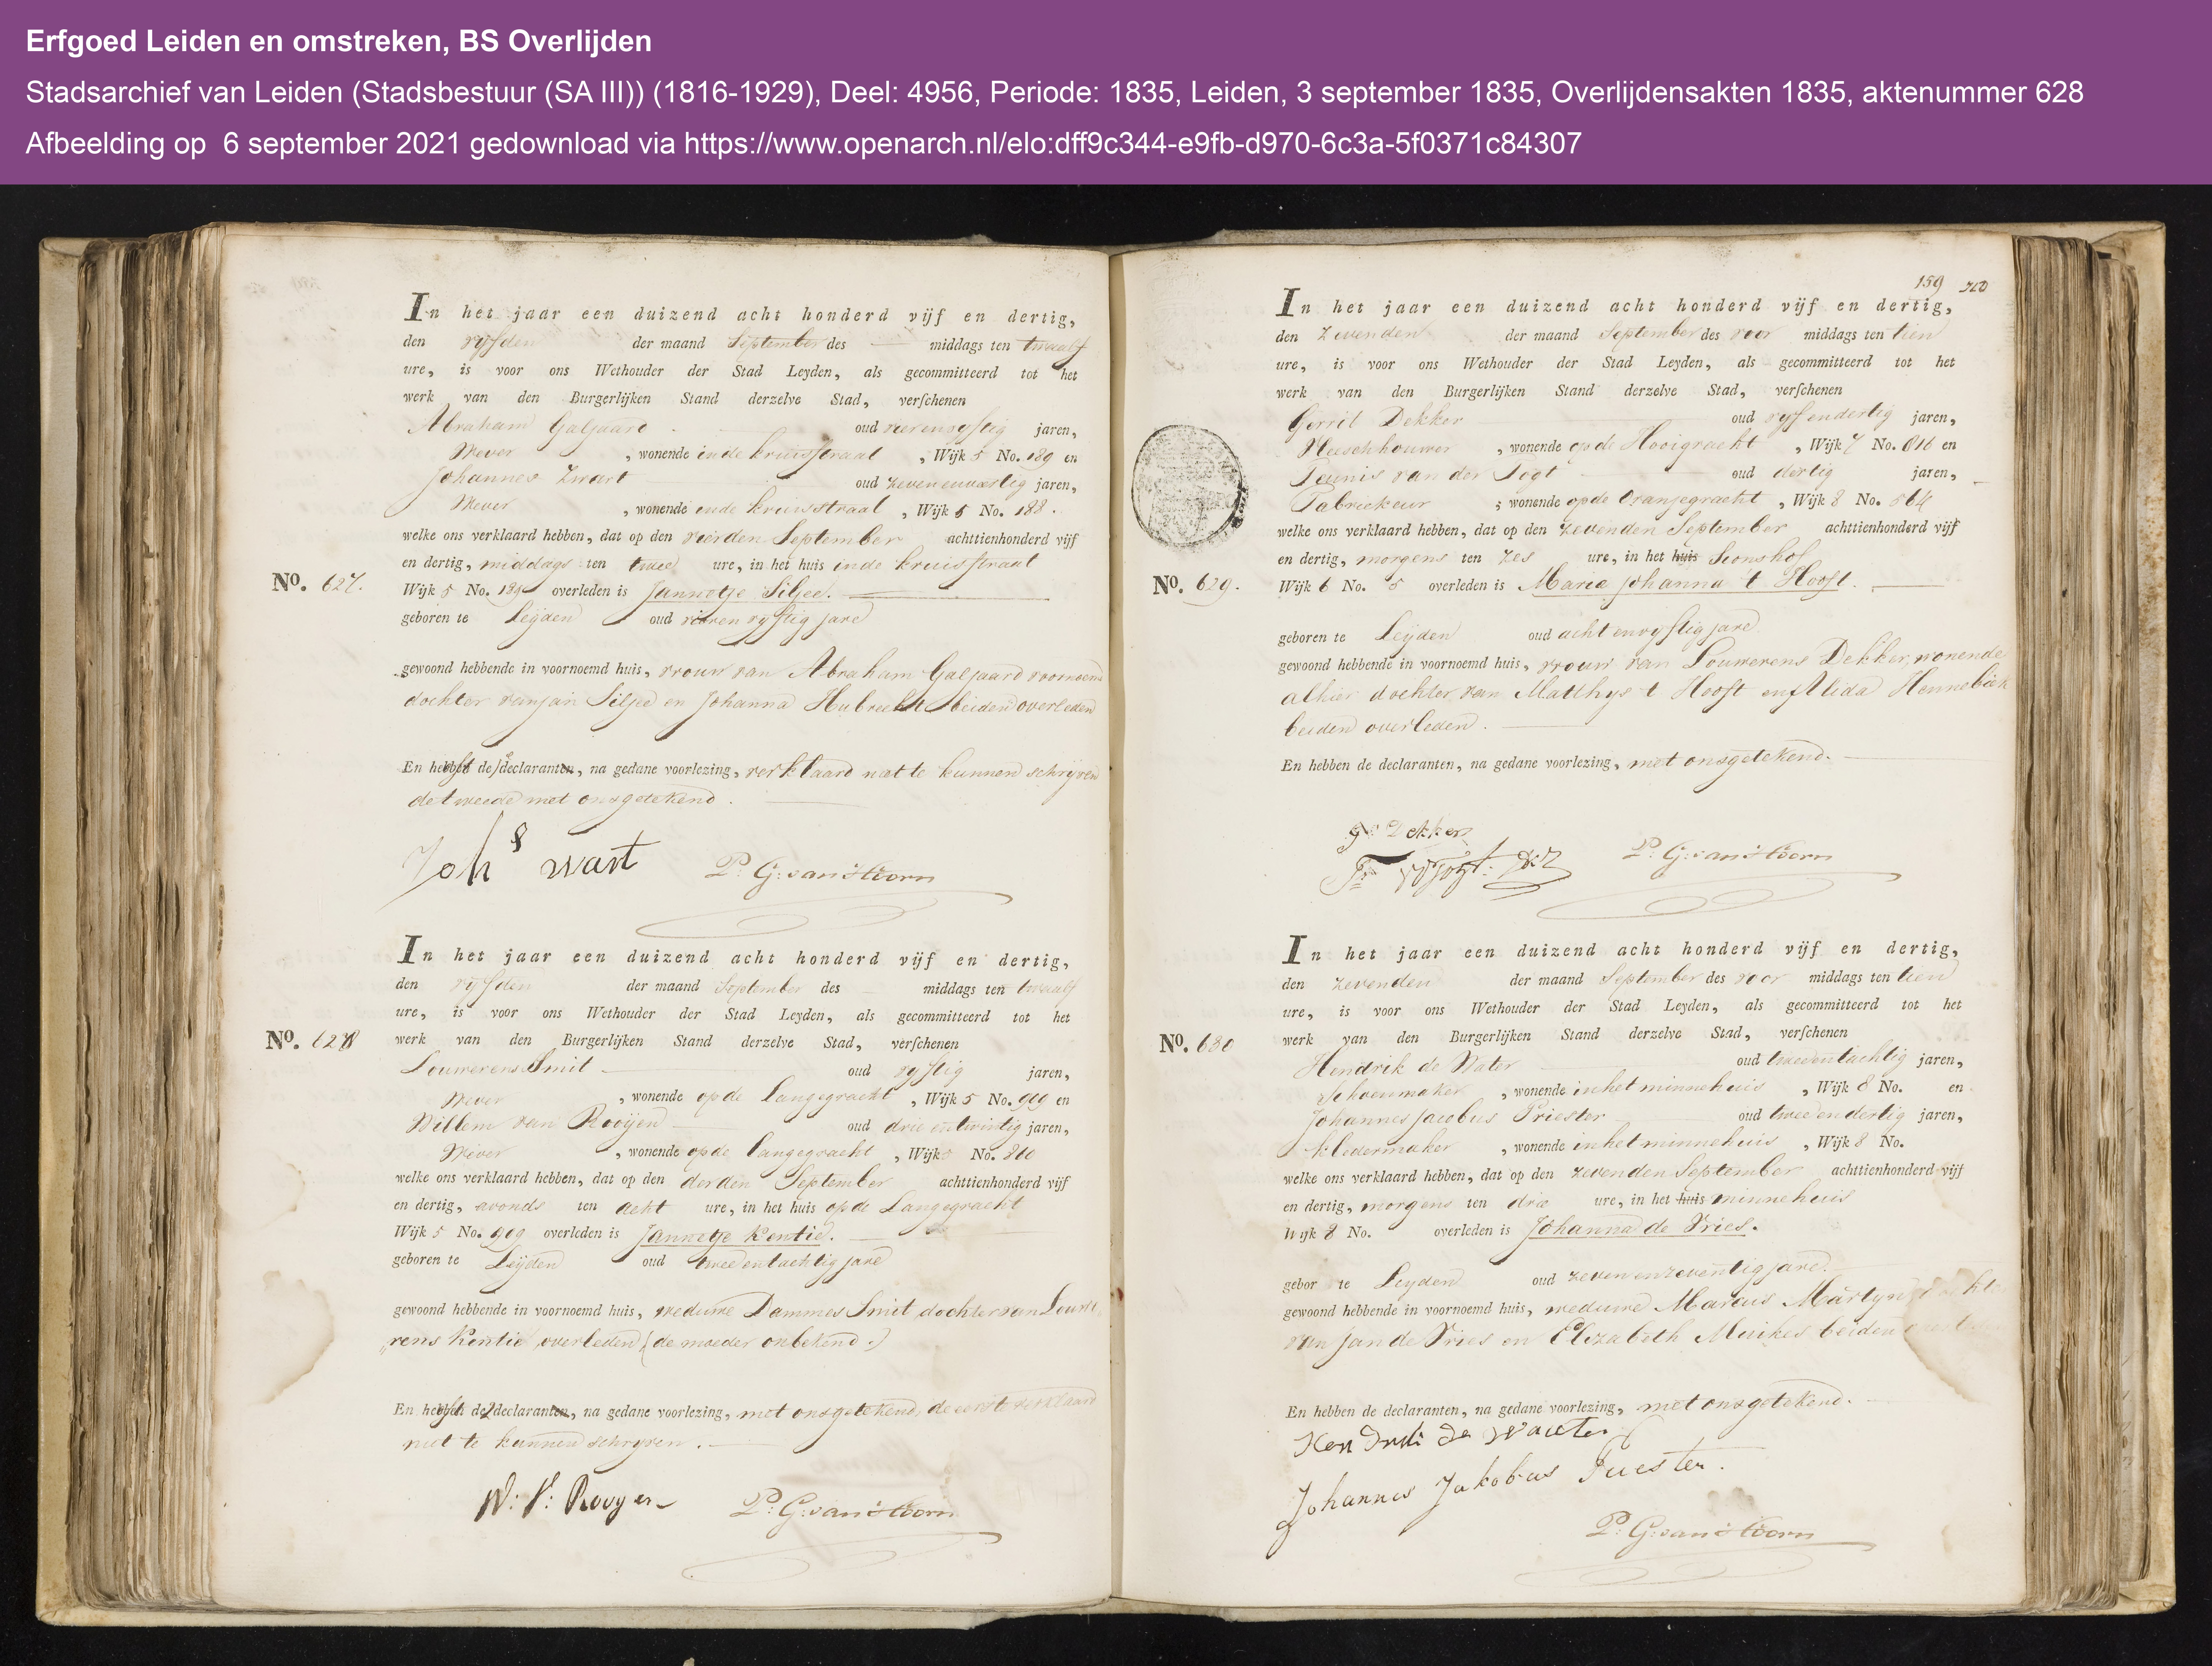 Erfgoed Leiden en omstreken, BS Overlijden
Stadsarchief van Leiden (Stadsbestuur (SA III)) (1816-1929), Deel: 4956, Periode: 1835, Leiden, 3 september 1835, Overlijdensakten 1835, aktenummer 628
Afbeelding op 6 september 2021 gedownload via https://www.openarch.nl/elo:dff9c344-e9fb-d970-6c3a-5f0371c84307
In het jaar een duizend acht honderd vijf en dertig,
den vyfden der maand September des — middags ten twaalf
ure, is voor ons Wethouder der Stad Leyden, als gecommitteerd tot het
werk van den Burgerlijken Stand derzelve Stad, verschenen
Abraham Galjaard oud vierenvyftig jaren,
Wever, wonende in de kruisstraat, Wijk 5 No. 189 en
Johannes Zwart oud zevenenveertig jaren,
Wever, wonende in de kruisstraat, Wijk 5 No. 188.
welke ons verklaard hebben, dat op den vierden September achttienhonderd vijf
en dertig, middags ten twee ure, in het huis in de kruisstraat
No. 627. Wijk 5 No. 189 overleden is Jannetje Siljee.
geboren te Leyden oud vieren vyftig jare
gewoond hebbende in voornoemd huis, vrouw van Abraham Galjaard voornoemd
dochter van Jan Siljee en Johanna Hubrecht beiden overleden
En de declarant, na gedane voorlezing, verklaard niet te kunnen schryven
de tweede met ons getekend.
Johs wart P: G: van Hoorn
In het jaar een duizend acht honderd vijf en dertig,
den vyfden der maand September des — middags ten twaalf
ure, is voor ons Wethouder der Stad Leyden, als gecommitteerd tot het
No. 628 werk van den Burgerlijken Stand derzelve Stad, verschenen
Louwerens Smit oud vyftig jaren,
Wever, wonende op de Langegracht, Wijk 5 No. 909 en
Willem van Rooyen oud drie en twintig jaren,
Wever, wonende op de Langegracht, Wijk No. 810
welke ons verklaard hebben, dat op den derden September achttienhonderd vijf
en dertig, avonds ten acht ure, in het huis op de Langegracht
Wijk 5 No. 909 overleden is Jannetje Kentie.
geboren te Leyden oud twee en tachtig jare
gewoond hebbende in voornoemd huis, weduwe Dammes Smit dochter van Louwe
„rens Kentie, overleden (de moeder onbekend.)
En de declarant, na gedane voorlezing, met ons getekend, de eerste verklaard
niet te kunnen schryven.
W: V: Rooyen P: G: van Hoorn
159
In het jaar een duizend acht honderd vijf en dertig,
den zevenden der maand September des voor middags ten tien
ure, is voor ons Wethouder der Stad Leyden, als gecommitteerd tot het
werk van den Burgerlijken Stand derzelve Stad, verschenen
Gerrit Dekker oud vyf en dertig jaren,
Vleeschhouwer, wonende op de Hooigracht, Wijk 7 No. 816 en
Teunis van der Togt oud dertig jaren,
Fabriekeur, wonende op de Oranjegracht, Wijk 8 No. 564
welke ons verklaard hebben, dat op den zevenden September achttienhonderd vijf
en dertig, morgens ten zes ure, in het huis Sionshof
No. 629. Wijk 6 No. 5 overleden is Maria Johanna 't Hooft.
geboren te Leyden oud acht en vyftig jare
gewoond hebbende in voornoemd huis, vrouw van Louwerens Dekker, wonende
alhier dochter van Matthys 't Hooft en Alida Hennebiek
beiden overleden.
En hebben de declaranten, na gedane voorlezing, met ons getekend.
Gt Dekker
P: G: van Hoorn
In het jaar een duizend acht honderd vijf en dertig,
den zevenden der maand September des voor middags ten tien
ure, is voor ons Wethouder der Stad Leyden, als gecommitteerd tot het
No. 630 werk van den Burgerlijken Stand derzelve Stad, verschenen
Hendrik de Water oud twee en tachtig jaren,
Schoenmaker, wonende in het minnehuis, Wijk 8 No. en
Johannes Jacobus Priester oud twee en dertig jaren,
kledermaker, wonende in het minnehuis, Wijk 8 No.
welke ons verklaard hebben, dat op den zevenden September achttienhonderd vijf
en dertig, morgens ten drie ure, in het huis minnehuis
Wijk 8 No. overleden is Johanna de Vries.
gebor te Leyden oud zeven en zeventig jare.
gewoond hebbende in voornoemd huis, weduwe Marcus Martyn
van Jan de Vries en Elizabeth Musikes beiden overleden
En hebben de declaranten, na gedane voorlezing, met ons getekend.
Hendrik de Waeter
Johannes Jakobus Priester.
P: G: van Hoorn